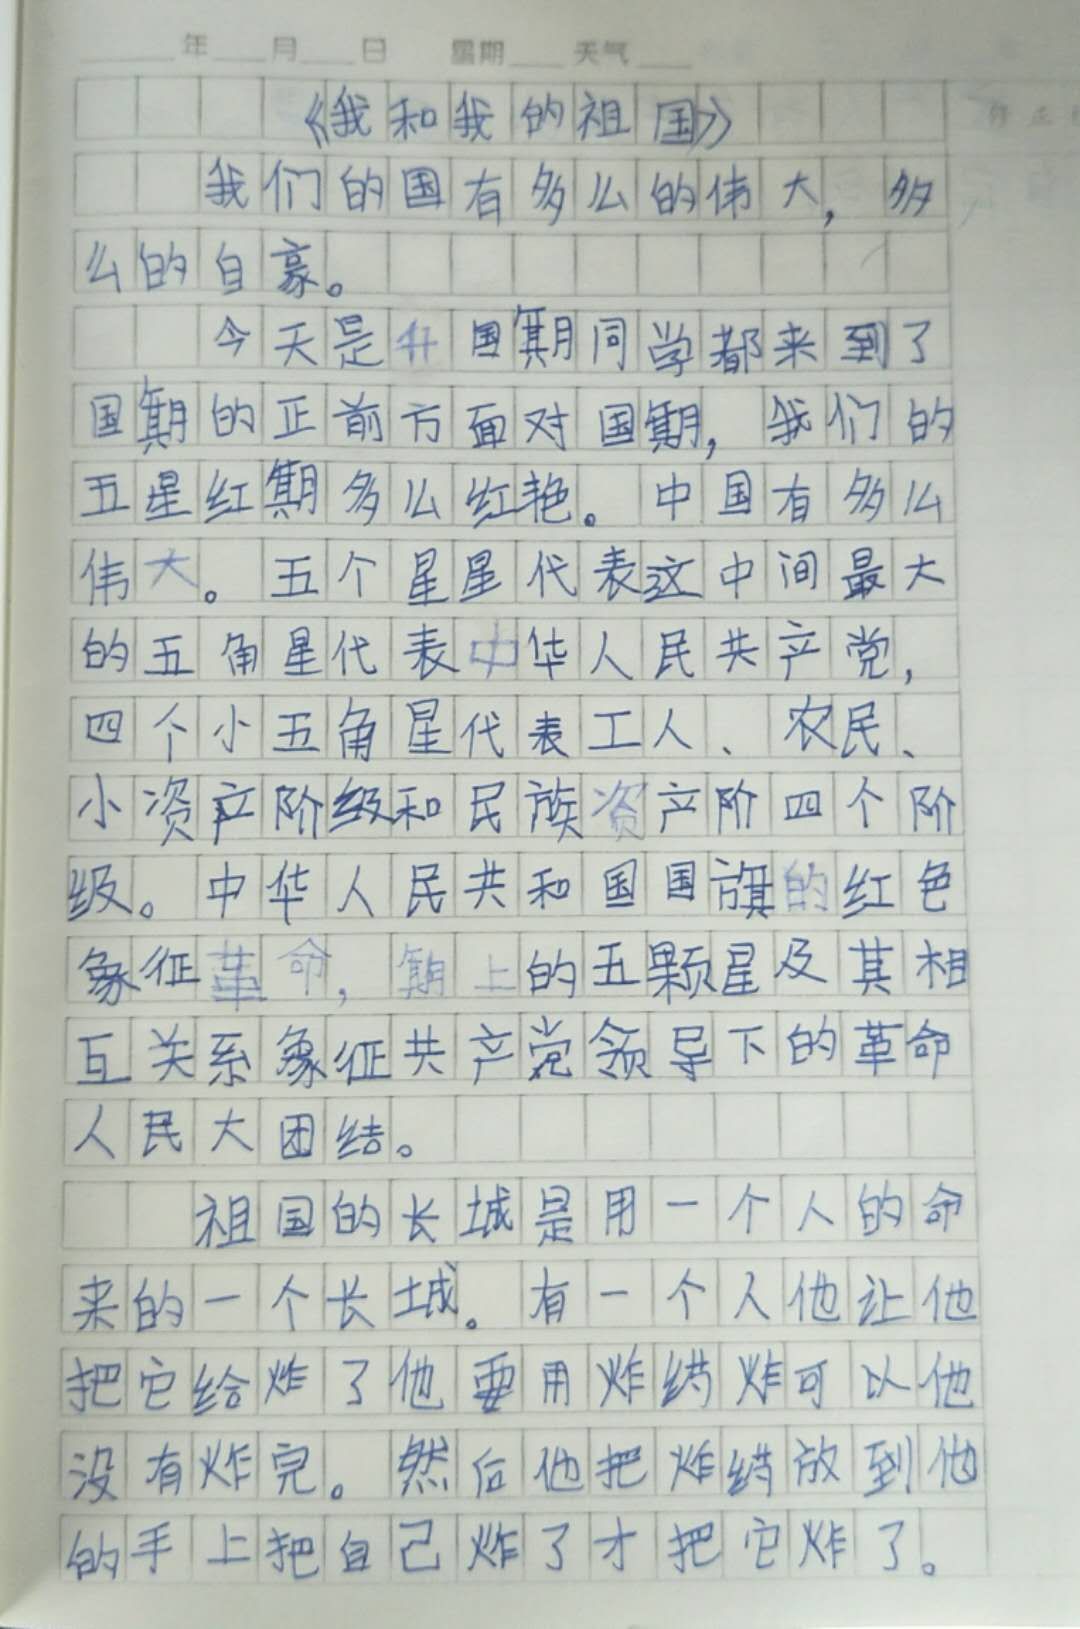 年 月 日 星期 天气
《我和我的祖国》
我们的国有多么的伟大，多
么的自豪。
今天是升国期同学都来到了
国期的正前方面对国期，我们的
五星红期多么红艳。中国有多么
伟大。五个星星代表这中间最大
的五角星代表中华人民共产党，
四个小五角星代表工人、农民、
小资产阶级和民族资产阶四个阶
级。中华人民共和国国旗的红色
象征革命，期上的五颗星及其相
互关系象征共产党领导下的革命
人民大团结。
祖国的长城是用一个人的命
来的一个长城。有一个人他让他
把它给炸了他要用炸炸可以他
没有炸完。然后他把炸放到他
的手上把自己炸了才把它炸了。